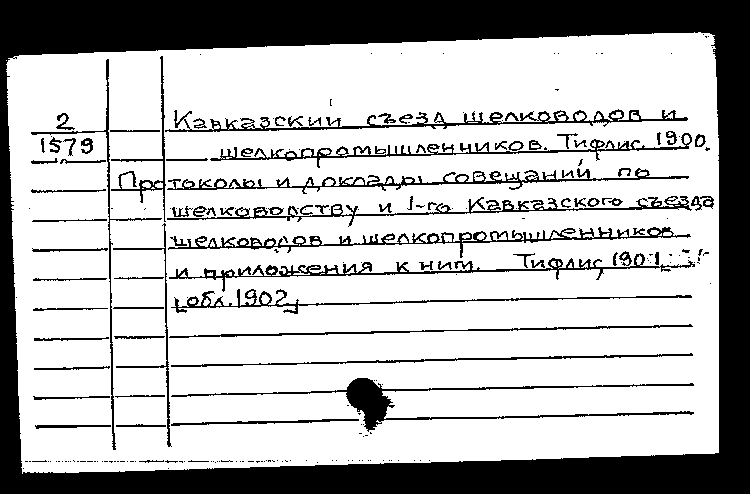 2
1579
Кавказский съезд шелководов и
шелкопромышленников. Тифлис. 1900.
Протоколы и доклады совещаний по
шелководству и 1-го Кавказского съезда
шелководов и шелкопромышленников
и приложения к ним. Тифлис, 1901.
[обл. 1902]